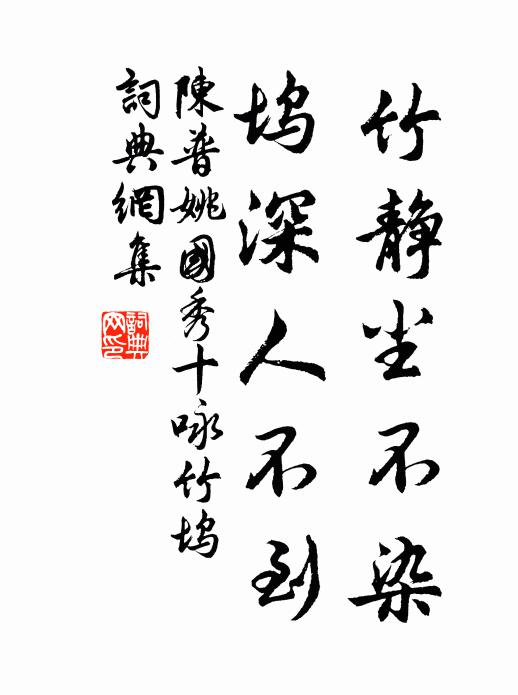 竹静尘不染
坞深人不到
陳普姚國秀十咏竹坞
詞典網集
詞典
网印